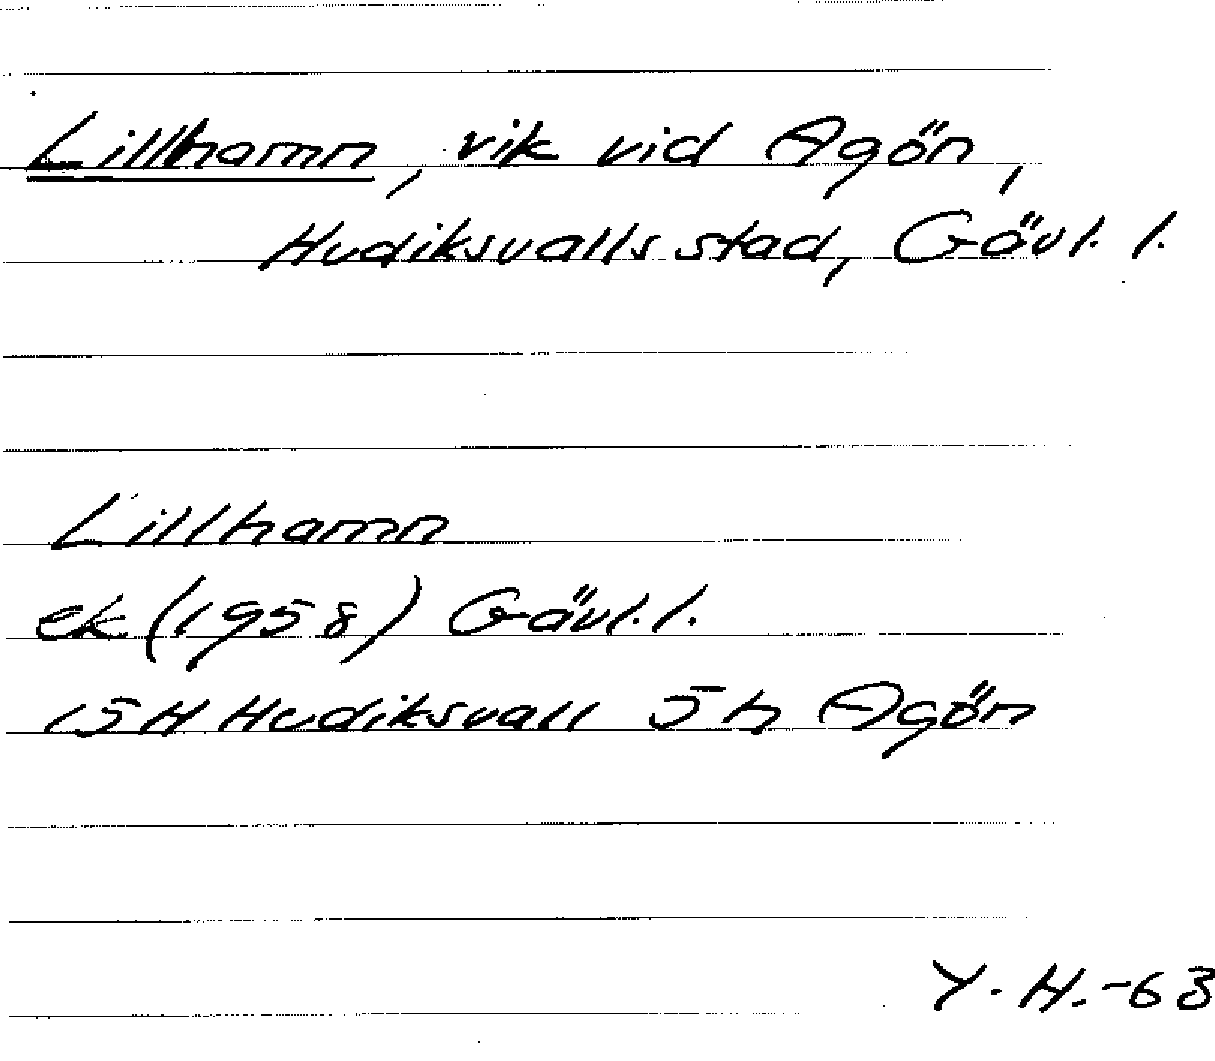 Lillhamn, vik vid Agön,
Hudiksvalls stad, Gävl. l.
Lillhamn
ek (1958) Gävl. l.
15H Hudiksvall 5h Agön
Y. H.-63